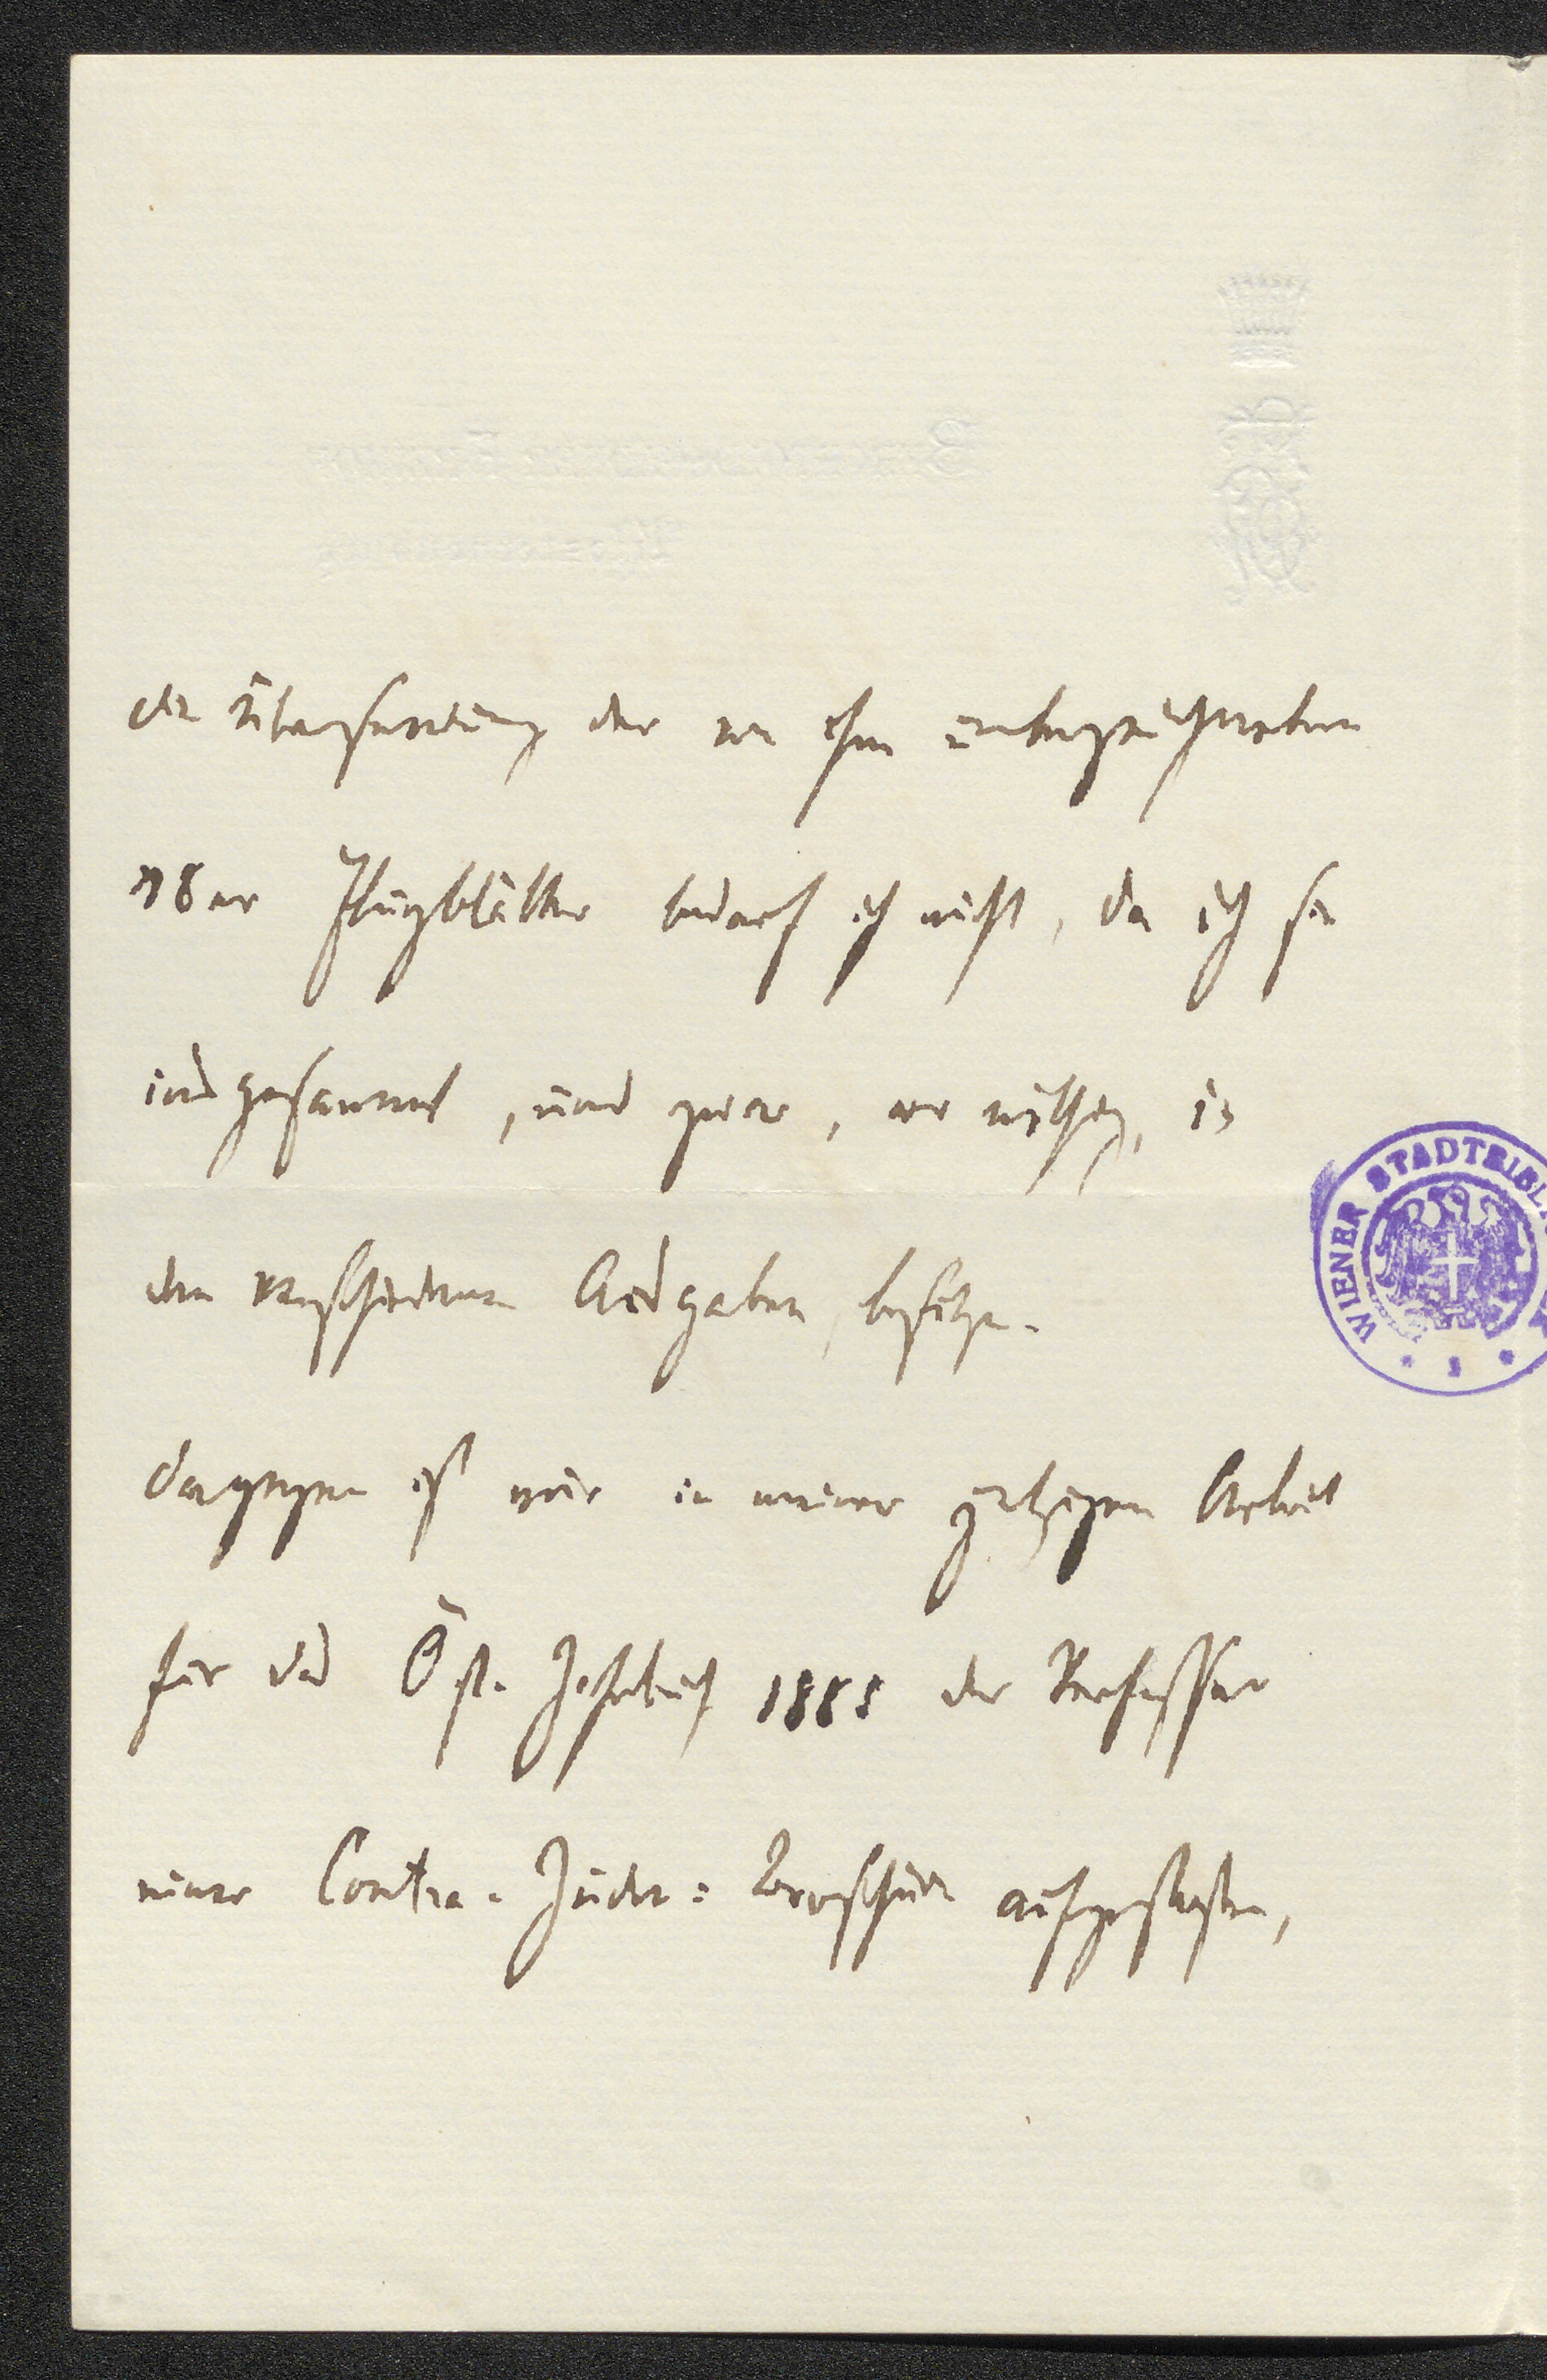 die Übersendung der von ihm unterzeichneten
48er Flugblätter bedarf ich nicht, da ich sie
insgesammt, und zwar, wo nöthig, in
den verschiedenen Ausgaben, besitze.
Dagegen ist mir in meiner jetzigen Arbeit
für das Öst. Jahrbuch 1885 der Verfasser
einer Contra-Juden-Broschüre aufgestoßen,
WIENER STADTBIBL